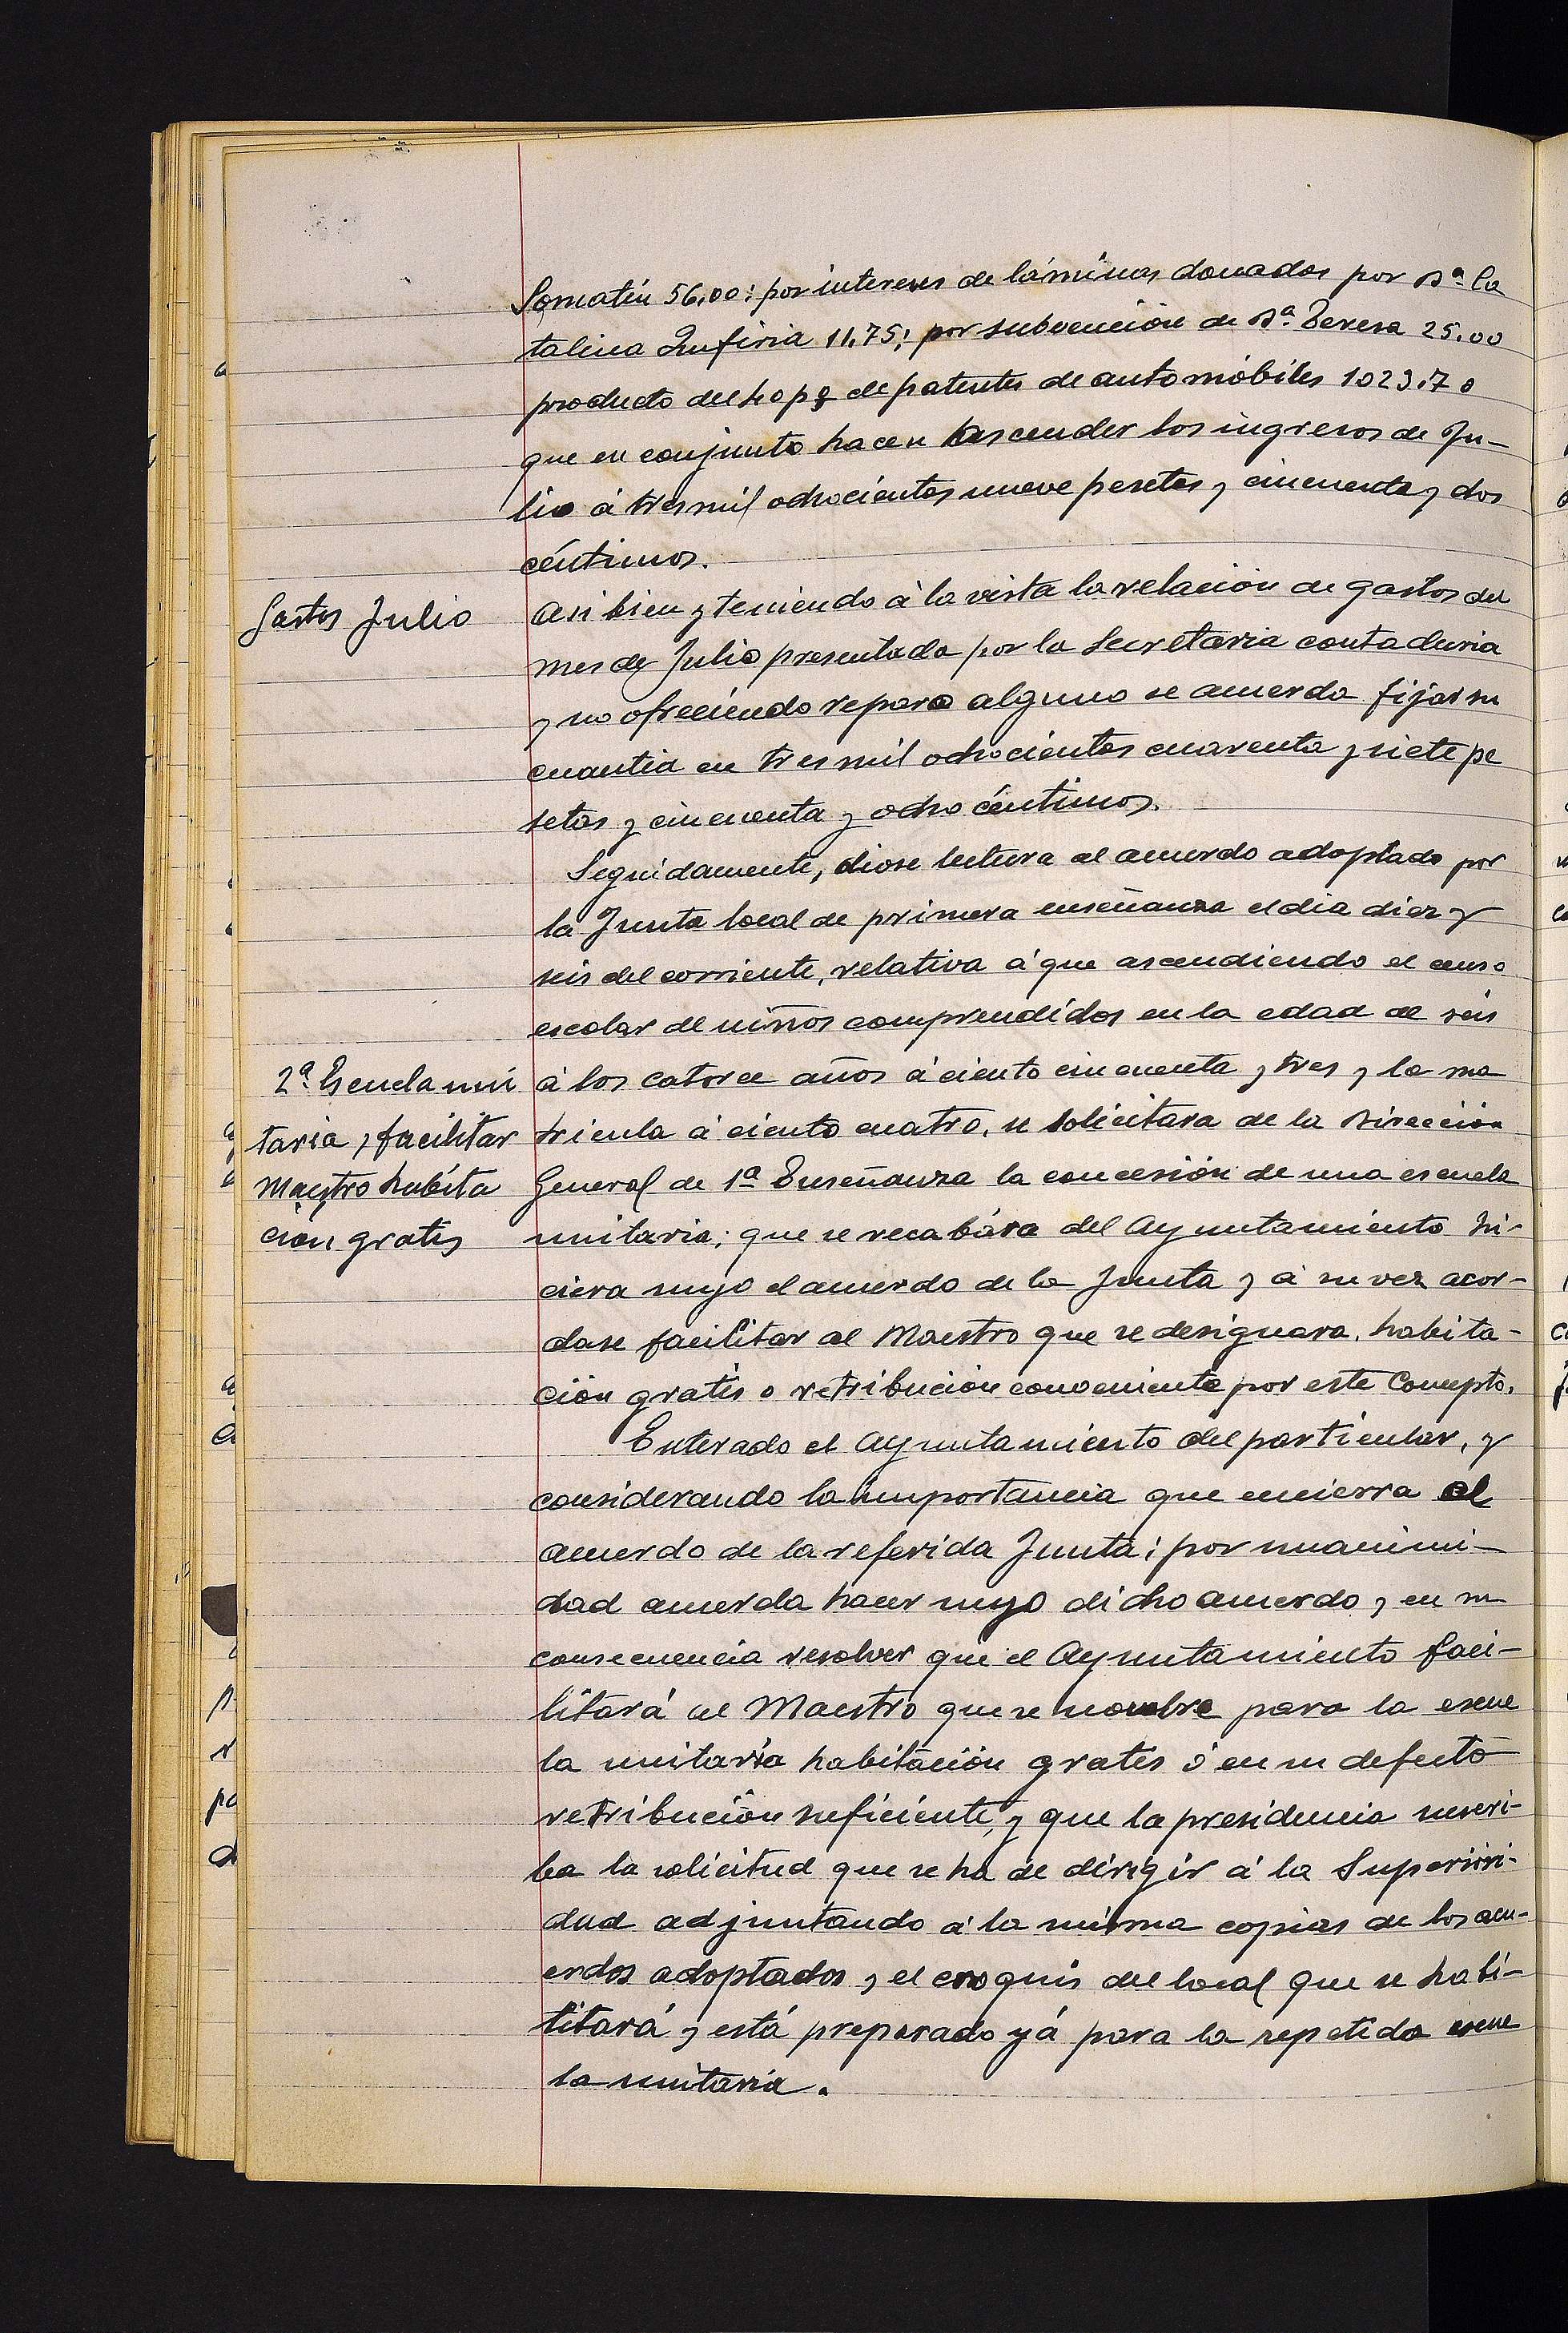 Somatén 56,00: por intereses de láminas donadas por Dª Ca
talina Zufiria 11,75; por subvención de Dª Teresa 25.00
producto del de patentes de automóbiles 1023.70
que en conjunto hacen ascender los ingresos de Ju-
lio á tres mil ochocientas nueve pesetas y cincuenta y dos
céntimos.
Gastos Julio
Asi bien y teniendo á la vista la relación de gastos del
mes de Julio presentada por la Secretaria contaduria
y no ofreciendo reparo alguno se acuerda fijar su
cuantia en tres mil ochocientas cuarenta y siete pe
setas y cincuenta y ocho céntimos.
Seguidamente, diose lectura al acuerdo adoptado por
la Junta local de primera enseñanza el dia diez y
seis del corriente, relativa á que ascendiendo el censo
escolar de niños comprendidos en la edad de seis
2ª Escuela uni
taria y facilitar
Maestro habita
ción gratis
á los catorce años á ciento cincuenta y tres y la ma
tricula á ciento cuatro, se solicitara de la Dirección
General de 1ª Enseñanza la concesión de una escuela
unitaria; que se recabára del Ayuntamiento hi-
ciera suyo el acuerdo de la Junta y á su vez acor-
dase facilitar al Maestro que se designara, habita-
ción gratis o retribución conveniente por este Concepto.
Enterado el Ayuntamiento del particular, y
considerando la importancia que encierra el
acuerdo de la referida Junta; por unanimi-
dad acuerda hacer suyo dicho acuerdo y en su
consecuencia resolver que el Ayuntamiento faci-
litará al Maestro que se nombre para la escue
la unitaria habitación gratis ó en su defecto
retribución suficiente, y que la presidencia suscri-
ba la solicitud que se ha de dirigir á la Superiori-
dad adjuntando á la misma copias de los acu-
erdos adoptados y el croquis del local que se habi-
litará y está preparado yá para la repetida escue
la unitaria.